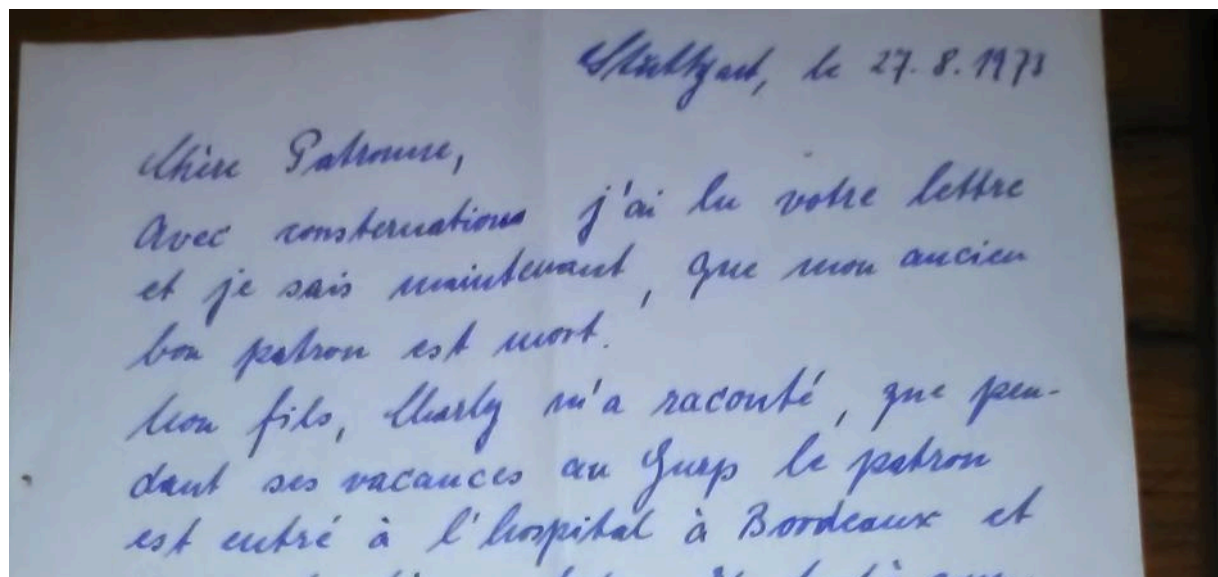 Stuttgart, le 27.8.1973
Chère Patronne,
Avec consternation j'ai lu votre lettre
et je sais maintenant, que mon ancien
bon patron est mort.
Mon fils, Charly m'a raconté, que pen-
dant ses vacances au Gurp le patron
est entré à l'hospital à Bordeaux et